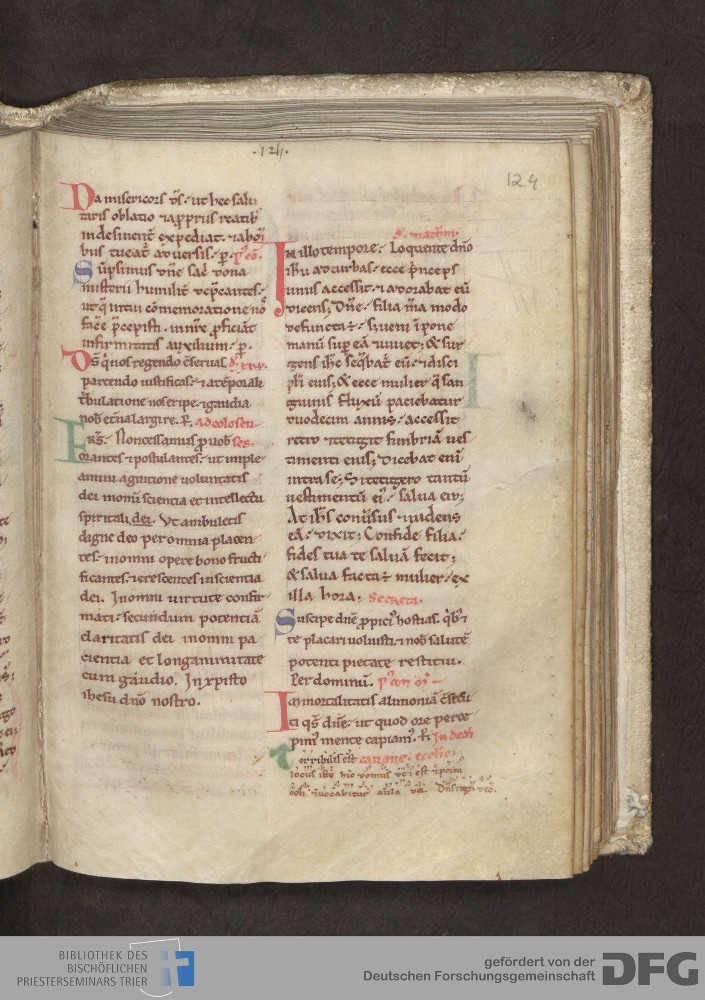 ·124·
124
Da misericors ds. ut hec salu
taris oblatio & a propriis reatib
indesinent expediat. & ab om
bus tueat aduersis. p.
Supsimus dne sac dona
misterii humilit dprecantes.
ut q in tui comemoratione nos
face pcepisti. in nre pficiat
infirmitatis auxilium. p.
Ds q nos regendo cseruas.
parcendo iustificas. & a teporali
tbulatione nos eripe. & gaudia
nob etna largire. P. ad colosen
Frs. Non cessamus p uob ses.
orantes & postulantes. ut imple
amini agnitione uoluntatis
dei. in omi scientia et intellectu
spiritali. dei. Ut ambuletis
digne deo per omnia placen
tes. in omni opere bono fructi
ficantes. & crescentes in scientia
dei. In omni uirtute confir
mati. secundum potentia
claritatis dei in omni pa
cientia et longanimitate
cum gaudio. In xpisto
ihesu dno nostro.
S. mathm.
In illo tempore. Loquente dno
ihu ad turbas. ecce princeps
unus accessit. & adorabat eu
dicens; Dne. filia ma modo
defuncta e. s; ueni ipone
manu sup ea & uiuet; & sur
gens ihc seqbat eu. & disci
pli eius; & ecce mulier q san
guinis fluxu paciebatur
duodecim annis. accessit
retro & tetigit fimbria ues
timenti eius; Dicebat eni
intra se; Si tetigero tantu
uestimentu ei. salua ero;
At ihs conuersus & uidens
ea. dixit; Confide filia.
fides tua te salua fecit;
& salua facta e mulier. ex
illa hora. Secreta.
Suscipe dne ppicius hostias. qb
te placari uoluisti. & nob salute
potenti pietate restitui.
Per dominu.
Inmortalitatis alimonia csecu
ti qs dne. ut quod ore perce
pim mente capiam. P. In dedi
Terribilis est catione. ecclie.
locus iste hic domus dei est & porta
celi & uocabitur aula dei. Dns regn deco.
BIBLIOTHEK DES
BISCHÖFLICHEN
PRIESTERSEMINARS TRIER
gefördert von der
Deutschen Forschungsgemeinschaft
DFG